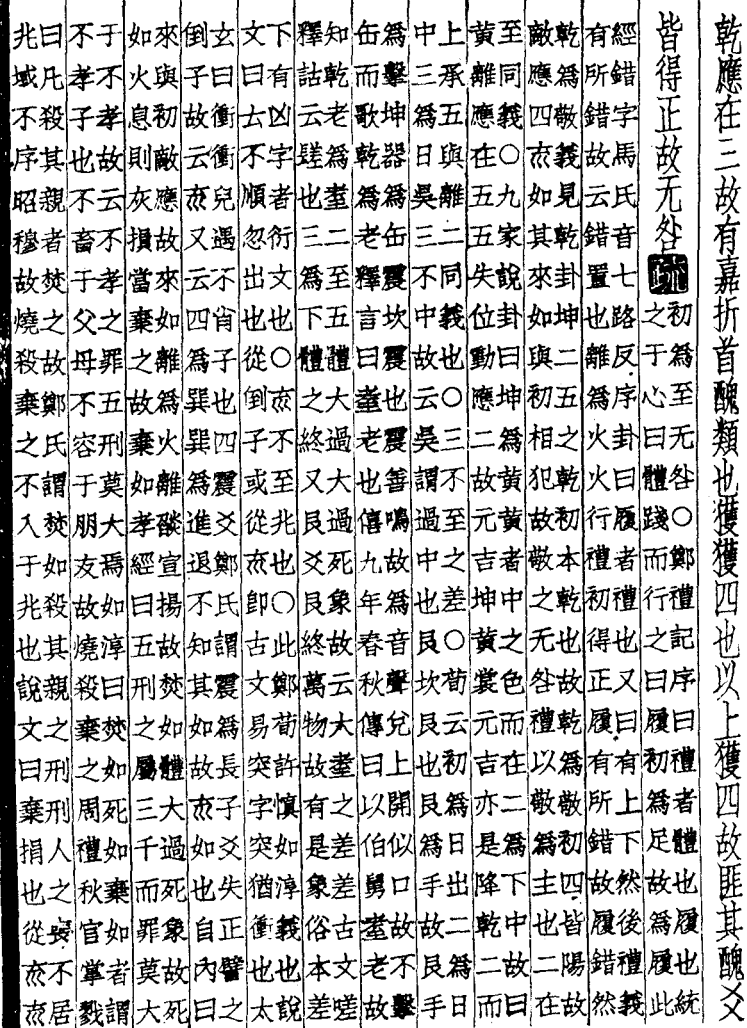 乾應在三故有嘉折首醜類也獲獲四也以上獲四故匪其醜爻
皆得正故无咎疏
初爲至无咎○鄭禮記序曰禮者體也履也統
之于心曰體踐而行之曰履初爲足故爲履此
經錯字馬氏音七路反序卦曰履者禮也又曰有上下然後禮義
有所錯故云錯置也離爲火火行禮初得正履有所錯故履錯然
乾爲敬義見乾卦坤二五之乾初本乾也故乾爲敬初四皆陽故
敵應四㐬如其來如與初相犯故敬之无咎禮以敬爲主也二在
至同義○九家說卦曰坤爲黃黃者中之色而在二爲下中故曰
黃離應在五五失位動應二故元吉坤黃裳元吉亦是降乾二而
上承五與離二同義也○三不至之差○荀云初爲日出二爲日
中三爲日吳三不中故云吳謂過中也艮坎艮也艮爲手故艮手
爲擊坤器爲缶震坎震也震善鳴故爲音聲兌上開似口故不擊
缶而歌乾爲老釋言曰耋老也僖九年春秋傳曰以伯舅耋老故
知乾老爲耋二至五體大過大過死象故云大耋之差差古文嗟
釋詁云也三爲下體之終又艮爻艮終萬物故有是象俗本差
下有凶字者衍文也○㐬不至兆也○此鄭荀許慎如淳義也說
文曰𠫓不順忽出也從倒子或從㐬卽古文易突字突猶衝也太
玄曰衝衝兒遇不肖子也四震爻鄭氏謂震爲長子爻失正譬之
倒子故云㐬又云四爲巽巽爲進退不知其如故㐬如也自內曰
來與初敵應故來如離爲火離燄宣揚故焚如體大過死象故死
如火息則灰損當棄之故棄如孝經曰五刑之屬三千而罪莫大
于不孝故云不孝之罪五刑莫大焉如淳曰焚如死如棄如者謂
不孝子也不畜于父母不容于朋友故燒殺棄之周禮秋官掌戮
曰凡殺其親者焚之故鄭氏謂焚如殺其親之刑刑人之喪不居
兆域不序昭穆故燒殺棄之不入于兆也說文曰棄捐也從㐬㐬